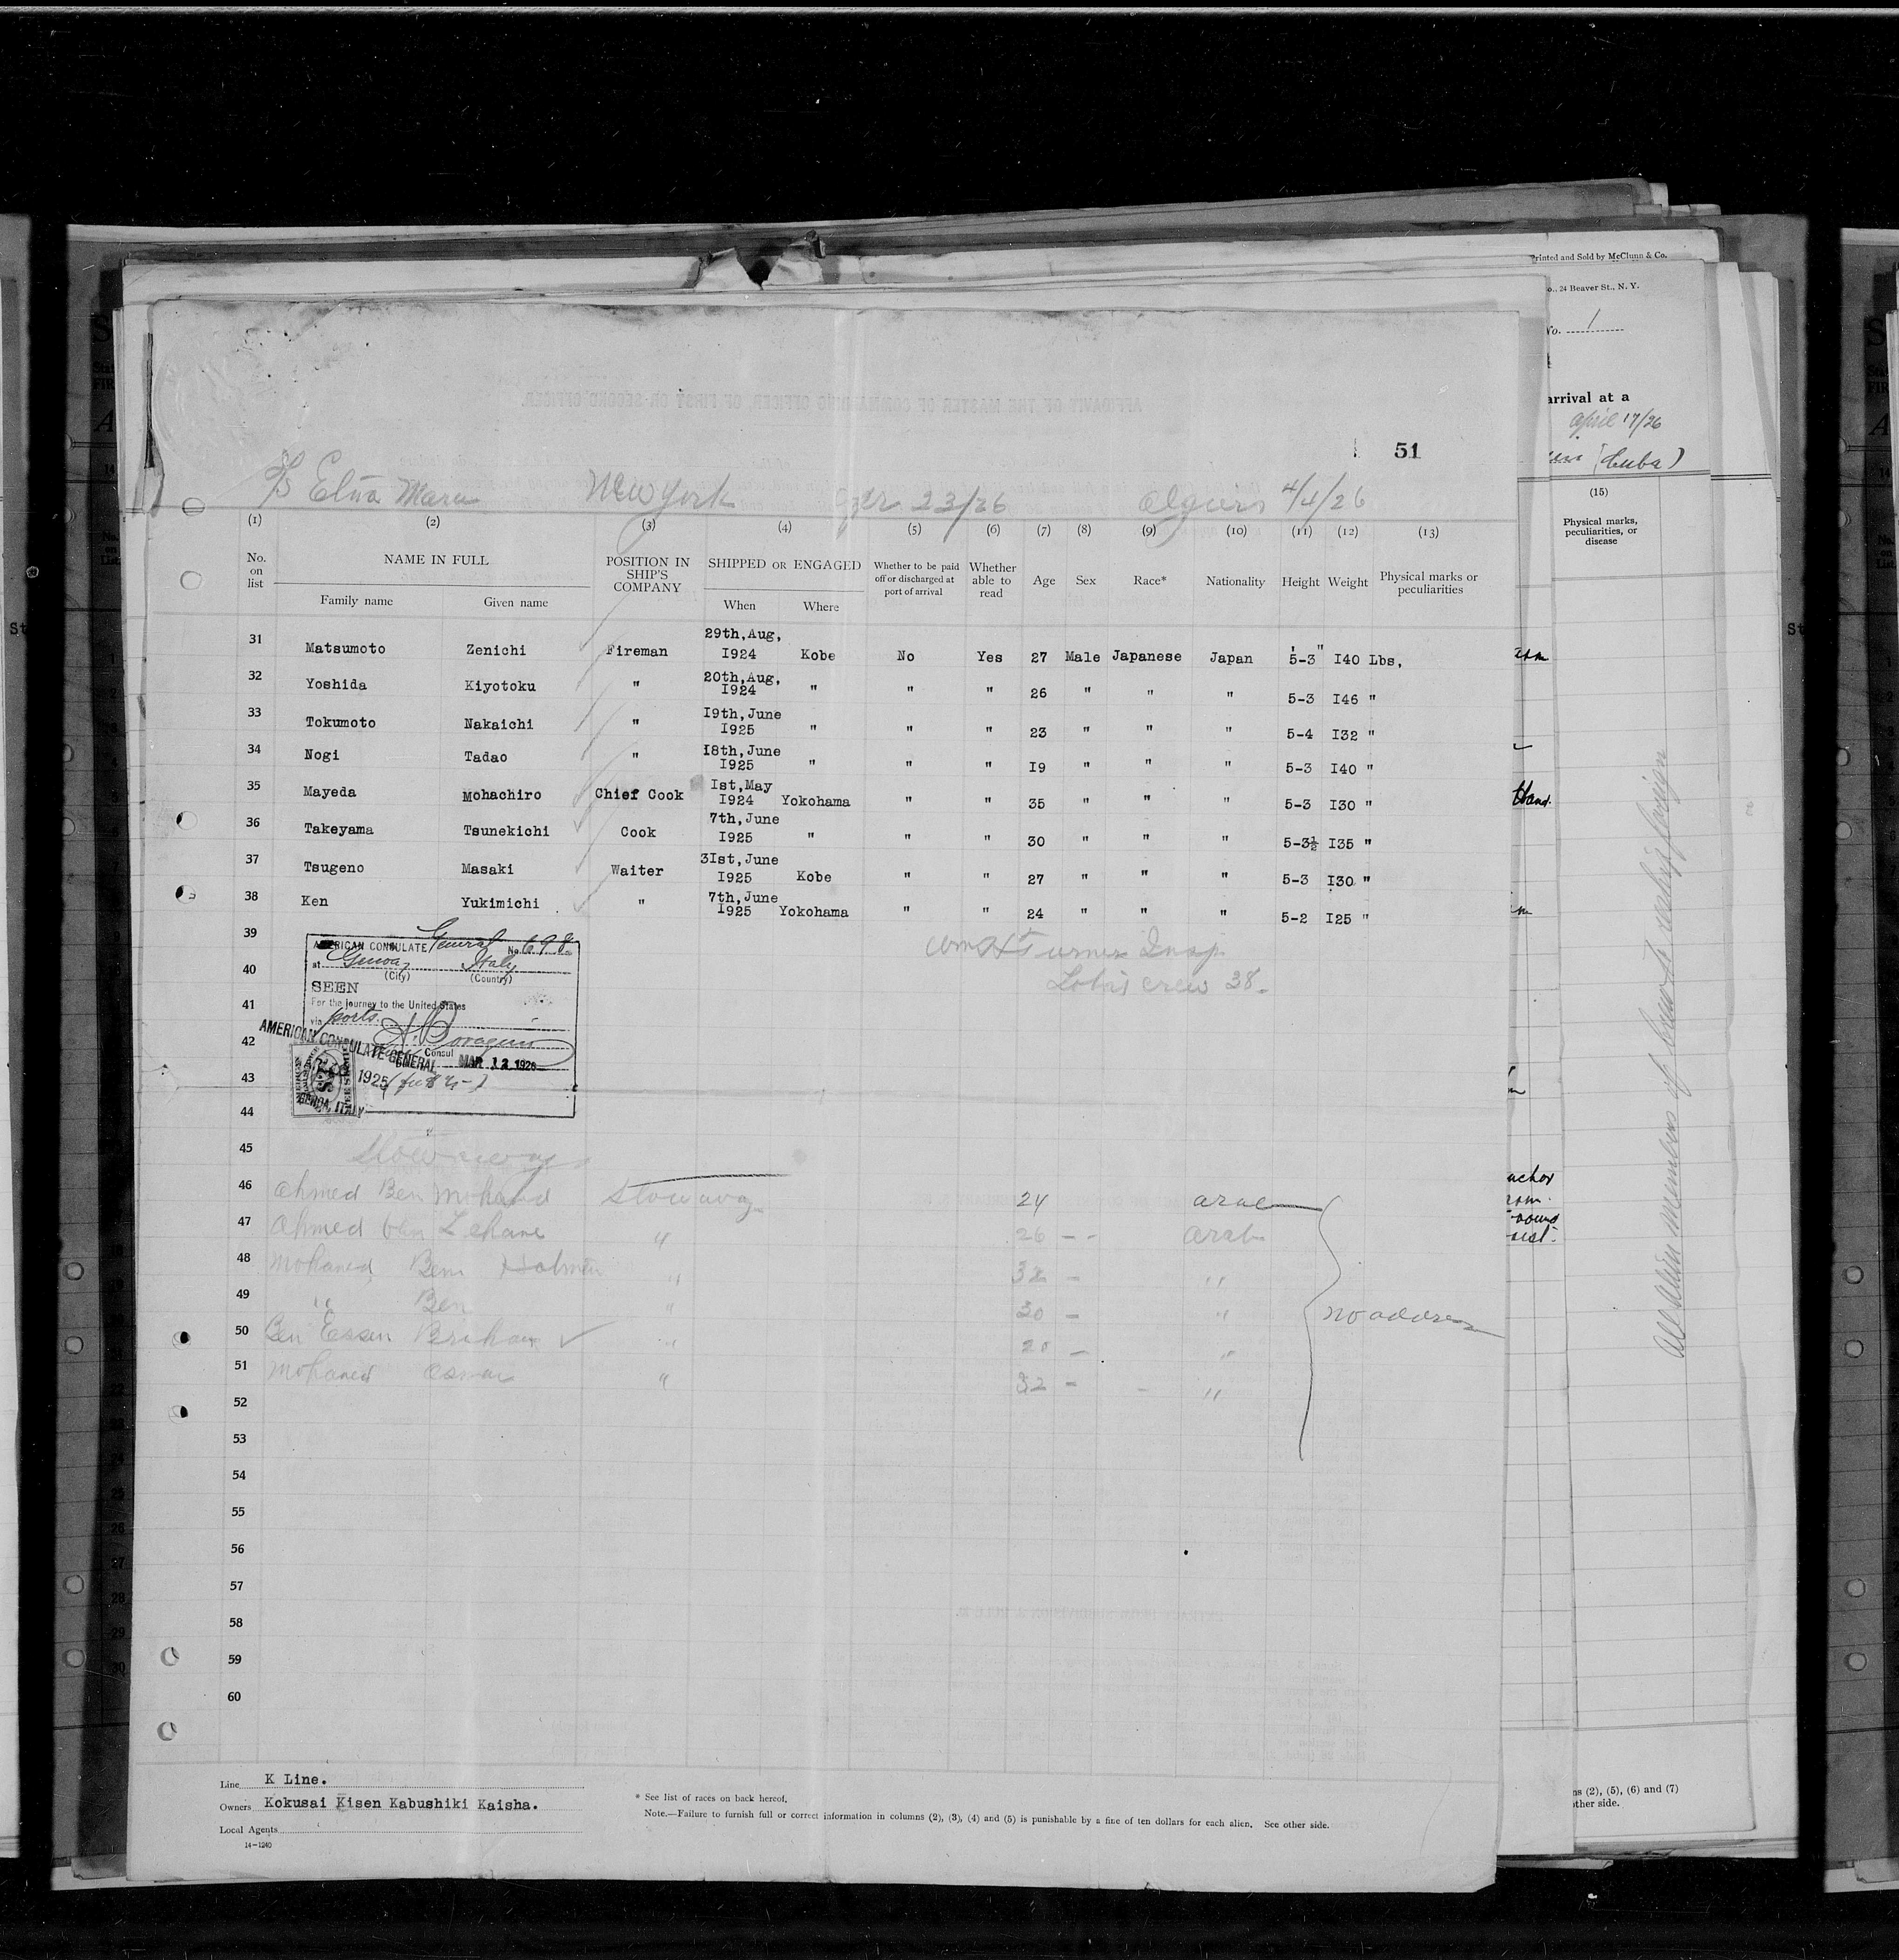 Printed and Sold by McClunn & Co.
24 Beaver St., N. Y.
No. 1
arrival at a
April 17/26
(Cuba)
(15)
Physical marks, peculiarities, or disease
51
S/S Elna Maru New York 23/26 Algiers 4/4/26
(1) (2) (3) (4) (5) (6) (7) (8) (9) (10) (11) (12) (13)
No. on list NAME IN FULL POSITION IN SHIP'S COMPANY SHIPPED OR ENGAGED Whether to be paid off or discharged at port of arrival Whether able to read Age Sex Race* Nationality Height Weight Physical marks or peculiarities
Family name Given name When Where
31 Matsumoto Zenichi Fireman 29th,Aug, I924 Kobe No Yes 27 Male Japanese Japan 5-3 I40 Lbs,
32 Yoshida Kiyotoku " 20th,Aug, I924 " " " 26 " " " 5-3 I46 "
33 Tokumoto Nakaichi " I9th,June I925 " " " 23 " " " 5-4 I32 "
34 Nogi Tadao " I8th,June I925 " " " I9 " " " 5-3 I40 "
35 Mayeda Mohachiro Chief Cook Ist,May I924 Yokohama " " 35 " " " 5-3 I30 "
36 Takeyama Tsunekichi Cook 7th,June I925 " " " 30 " " " 5-3½ I35 "
37 Tsugeno Masaki Waiter 3Ist,June I925 Kobe " " 27 " " " 5-3 I30 "
38 Ken Yukimichi " 7th,June I925 Yokohama " " 24 " " " 5-2 I25 "
39
Wm H Turner Insp.
Total crew 38.
AMERICAN CONSULATE General No. 698
at Genoa, Italy
(City) (Country)
40
SEEN
41
For the journey to the United States
via ports.
42
AMERICAN CONSULATE GENERAL
Consul MAR 12 1926
43
1925
GENOA, ITALY
44
45 Stowaways
46 Ahmed Ben Mohand Stowaway 24 Arab
47 Ahmed Ben Lehane " 26 - - Arab
48 Mohamed Ben " 32 - "
49 " Ben " 30 - " no address
50 Ben Essen Braham " 20 - "
51 Mohamed Osman " 32 - - "
52
53
54
55
56
57
58
59
60
Line K Line.
Owners Kokusai Kisen Kabushiki Kaisha.
Local Agents
14-1240
* See list of races on back hereof.
Note.—Failure to furnish full or correct information in columns (2), (3), (4) and (5) is punishable by a fine of ten dollars for each alien. See other side.
All alien members of crew to reship foreign
(2), (5), (6) and (7)
other side.